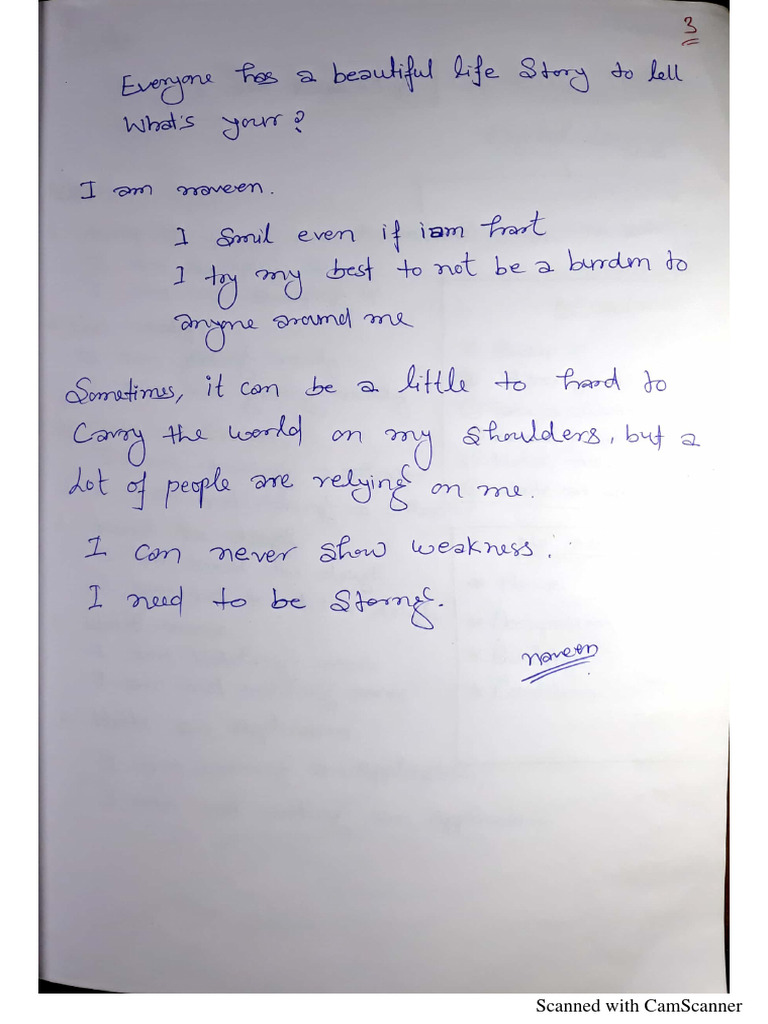 3
Everyone has a beautiful life story to tell
What's yourr?
I am naveen.
I Smil even if iam hart
I try my best to not be a burrden to
anyone around me
Sometimes, it can be a little to hard to
Carry the world on my shoulders, but a
Lot of people are relying on me.
I can never show weakness.
I need to be Storng.
naveen
Scanned with CamScanner